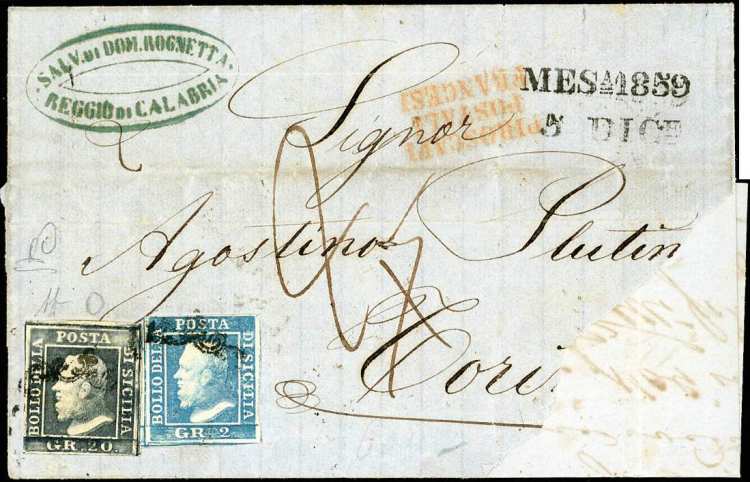 SALV. DI DOM. ROGNETTA
REGGIO DI CALABRIA
MESA. 1859
5 DICE
PIROSCAFI
POSTALI
FRANCESI
Signor
Agostino Plutin
Tori
POSTA
BOLLO DELLA
DI SICILIA
GR. 20.
POSTA
BOLLO DELLA
DI SICILIA
GR. 2